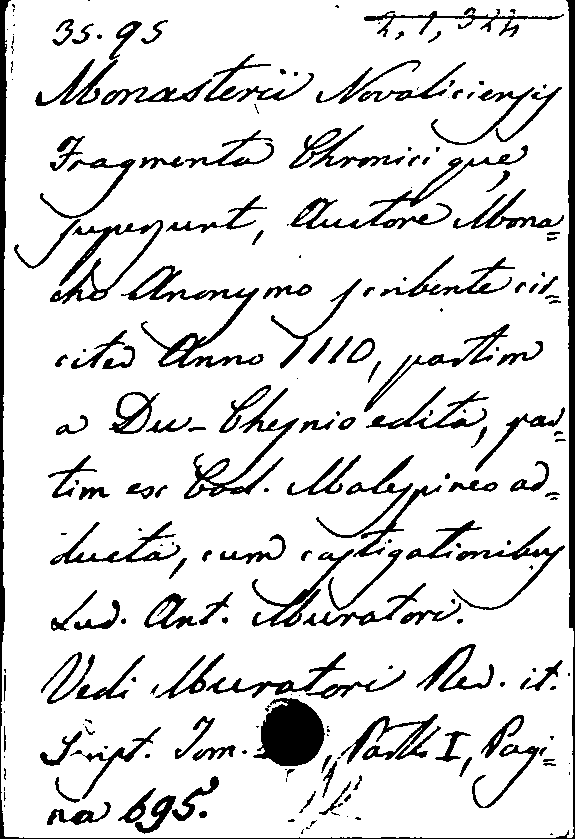 35. 95 2, 1, 324
Monasterii Novaliciensis
Fragmenta Chronici que
supersunt, Auctore Mona=
cho Anonymo scribente cir=
citer Anno 1110, partim
a Du-Chesnio edita, par=
tim ex Cod. Malespineo ad=
ducta, cum castigationibus
Lud. Ant. Muratori.
Vedi Muratori Rer. it.
Script. Tom. , Parte I, Pagi=
na 695.